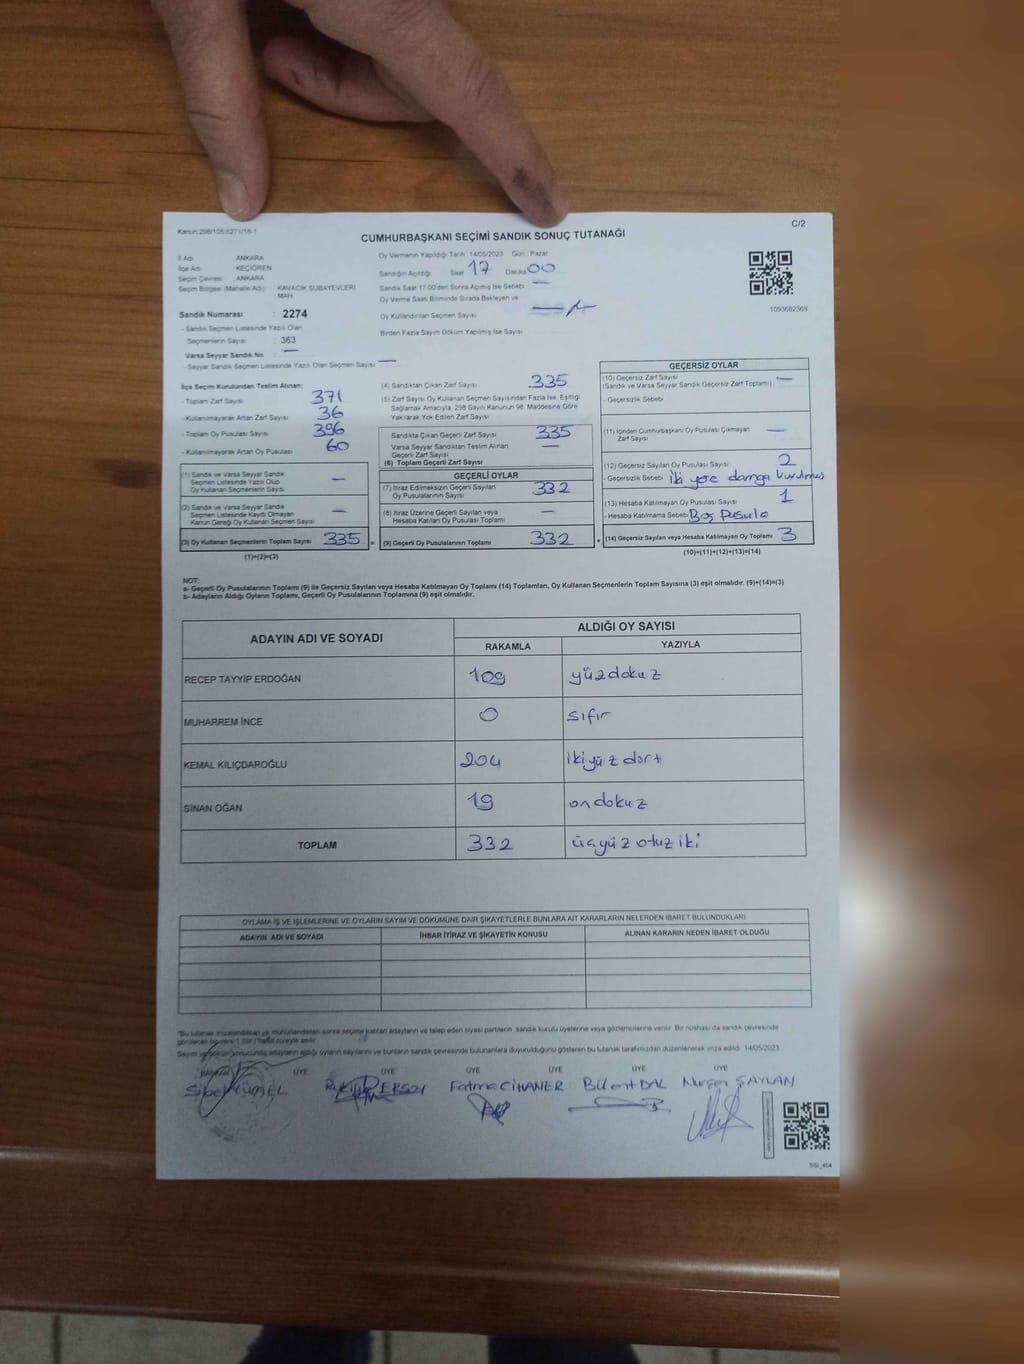 Kanun:298/105;6271/16-1
C/2
CUMHURBAŞKANI SEÇİMİ SANDIK SONUÇ TUTANAĞI
İl Adı : ANKARA
İlçe Adı : KEÇİÖREN
Seçim Çevresi : ANKARA
Seçim Bölgesi (Mahalle Adı) : KAVACIK SUBAYEVLERİ MAH
Sandık Numarası : 2274
- Sandık Seçmen Listesinde Yazılı Olan
Seçmenlerin Sayısı : 363
Varsa Seyyar Sandık No : —
- Seyyar Sandık Seçmen Listesinde Yazılı Olan Seçmen Sayısı : —
Oy Vermenin Yapıldığı Tarih: 14/05/2023 Gün : Pazar
Sandığın Açıldığı Saat 17 Dakika 00
Sandık Saat 17:00'den Sonra Açılmış İse Sebebi : —
Oy Verme Saati Bitiminde Sırada Bekleyen ve
Oy Kullandırılan Seçmen Sayısı : —
Birden Fazla Sayım Döküm Yapılmış İse Sayısı :
1093682368
İlçe Seçim Kurulundan Teslim Alınan;
- Toplam Zarf Sayısı : 371
- Kullanılmayarak Artan Zarf Sayısı : 36
- Toplam Oy Pusulası Sayısı : 396
- Kullanılmayarak Artan Oy Pusulası : 60
(1) Sandık ve Varsa Seyyar Sandık
Seçmen Listesinde Yazılı Olup
Oy Kullanan Seçmenlerin Sayısı : —
(2) Sandık ve Varsa Seyyar Sandık
Seçmen Listesinde Kayıtlı Olmayan
Kanun Gereği Oy Kullanan Seçmen Sayısı : —
(3) Oy Kullanan Seçmenlerin Toplam Sayısı : 335 =
(1)+(2)=(3)
(4) Sandıktan Çıkan Zarf Sayısı : 335
(5) Zarf Sayısı Oy Kullanan Seçmen Sayısından Fazla İse, Eşitliği
Sağlamak Amacıyla, 298 Sayılı Kanunun 98. Maddesine Göre
Yakılarak Yok Edilen Zarf Sayısı :
Sandıkta Çıkan Geçerli Zarf Sayısı : 335
Varsa Seyyar Sandıktan Teslim Alınan
Geçerli Zarf Sayısı : —
(6) Toplam Geçerli Zarf Sayısı :
GEÇERLİ OYLAR
(7) İtiraz Edilmeksizin Geçerli Sayılan
Oy Pusulalarının Sayısı : 332
(8) İtiraz Üzerine Geçerli Sayılan veya
Hesaba Katılan Oy Pusulası Toplamı : —
(9) Geçerli Oy Pusulalarının Toplamı : 332 +
GEÇERSİZ OYLAR
(10) Geçersiz Zarf Sayısı : —
(Sandık ve Varsa Seyyar Sandık Geçersiz Zarf Toplamı)
- Geçersizlik Sebebi :
(11) İçinden Cumhurbaşkanı Oy Pusulası Çıkmayan
Zarf Sayısı : —
(12) Geçersiz Sayılan Oy Pusulası Sayısı : 2
- Geçersizlik Sebebi : İki yere damga vurulmuş
(13) Hesaba Katılmayan Oy Pusulası Sayısı : 1
- Hesaba Katılmama Sebebi : Boş Pusula
(14) Geçersiz Sayılan veya Hesaba Katılmayan Oy Toplamı : 3
(10)+(11)+(12)+(13)=(14)
NOT:
a- Geçerli Oy Pusulalarının Toplamı (9) ile Geçersiz Sayılan veya Hesaba Katılmayan Oy Toplamı (14) Toplamları, Oy Kullanan Seçmenlerin Toplam Sayısına (3) eşit olmalıdır. (9)+(14)=(3)
b- Adayların Aldığı Oyların Toplamı, Geçerli Oy Pusulalarının Toplamına (9) eşit olmalıdır.
ADAYIN ADI VE SOYADI ALDIĞI OY SAYISI
RAKAMLA YAZIYLA
RECEP TAYYİP ERDOĞAN 109 yüzdokuz
MUHARREM İNCE 0 sıfır
KEMAL KILIÇDAROĞLU 204 ikiyüzdört
SİNAN OĞAN 19 ondokuz
TOPLAM 332 üçyüzotuziki
OYLAMA İŞ VE İŞLEMLERİNE VE OYLARIN SAYIM VE DÖKÜMÜNE DAİR ŞİKAYETLERLE BUNLARA AİT KARARLARIN NELERDEN İBARET BULUNDUKLARI
ADAYIN ADI VE SOYADI İHBAR İTİRAZ VE ŞİKAYETİN KONUSU ALINAN KARARIN NEDEN İBARET OLDUĞU
"Bu tutanak imzalandıktan ve mühürlendikten sonra seçime katılan adayların ve talep eden siyasi partilerin sandık kurulu üyelerine veya gözlemcilerine verilir. Bir nüshası da sandık çevresinde
görülecek bir yere 1 (bir) hafta süreyle asılır.
Sayım ve döküm sonucunda adayların aldığı oyların sayılarını ve bunların sandık çevresinde bulunanlara duyurulduğunu gösteren bu tutanak tarafımızdan düzenlenerek imza edildi. 14/05/2023
BAŞKAN ÜYE ÜYE ÜYE ÜYE
ERSOY Fatma CİHANER Bülent DAL Nurşen ŞAYLAN
SSI_404